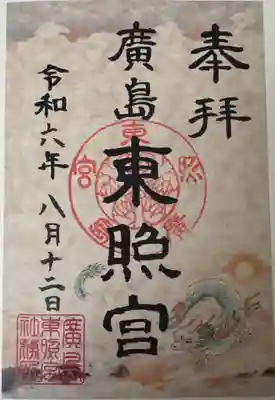 奉拝
廣島東照宮
令和六年八月十二日
廣島
東照宮
社務所